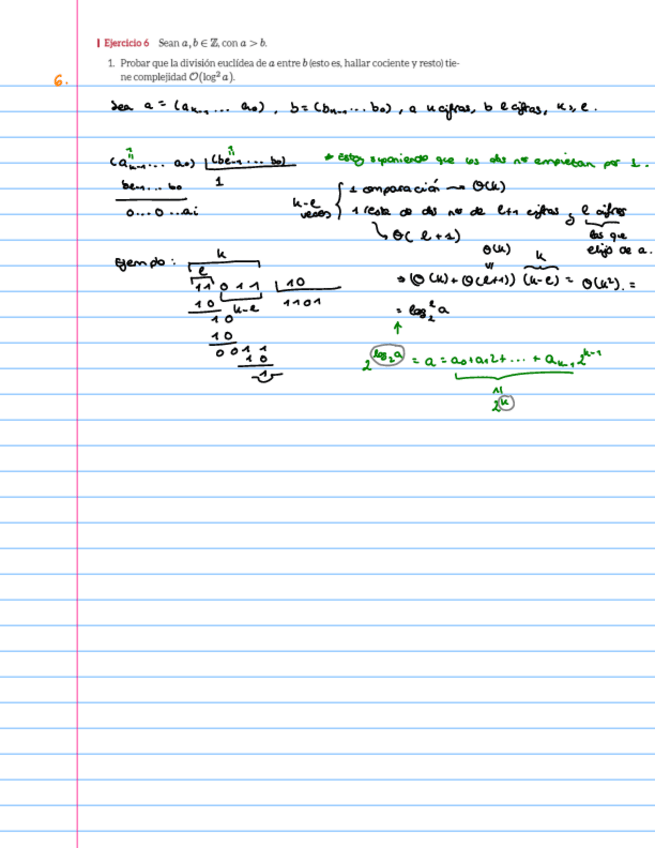 Ejercicio 6 Sean a, b ∈ ℤ, con a > b.
1. Probar que la división euclídea de a entre b (esto es, hallar cociente y resto) tie-
ne complejidad O(log² a).
6.
Sea a = (aₖ₋₁ ... a₀), b = (bₗ₋₁ ... b₀), a k cifras, b l cifras, k ≥ l.
(aₖ₋₁ ... a₀) | (bₗ₋₁ ... b₀) * Estoy suponiendo que los dos nº empiezan por 1.
bₗ₋₁ ... b₀ 1
0...0...aᵢ
k-l veces { 1 comparación → O(k)
1 resta de dos nº de l+1 cifras y l cifras
↳ O(l+1)
las que elijo de a.
Ejemplo: k
l
11011 | 10
10 k-l 1101
10
10
0011
10
1
O(k) k
⇒ (O(k) + O(l+1)) (k-l) = O(k²). =
= log₂² a
↑
2^(log₂ a) = a = a₀ + a₁2 + ... + aₖ₋₁ 2^(k-1)
2^k